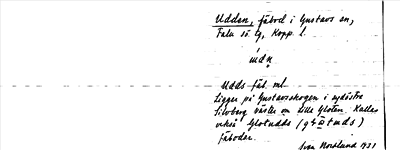 Udden, fäbod i Gustavs sn,
Falu sö. tg, Kopp. l.
údn
Udds fäb. ml.
Ligger på Gustavsskogen i sydöstra
Silvberg väster om Lilla Gloten. Kallas
också Glotudds
fäbodar.
Sven Norlund 1931